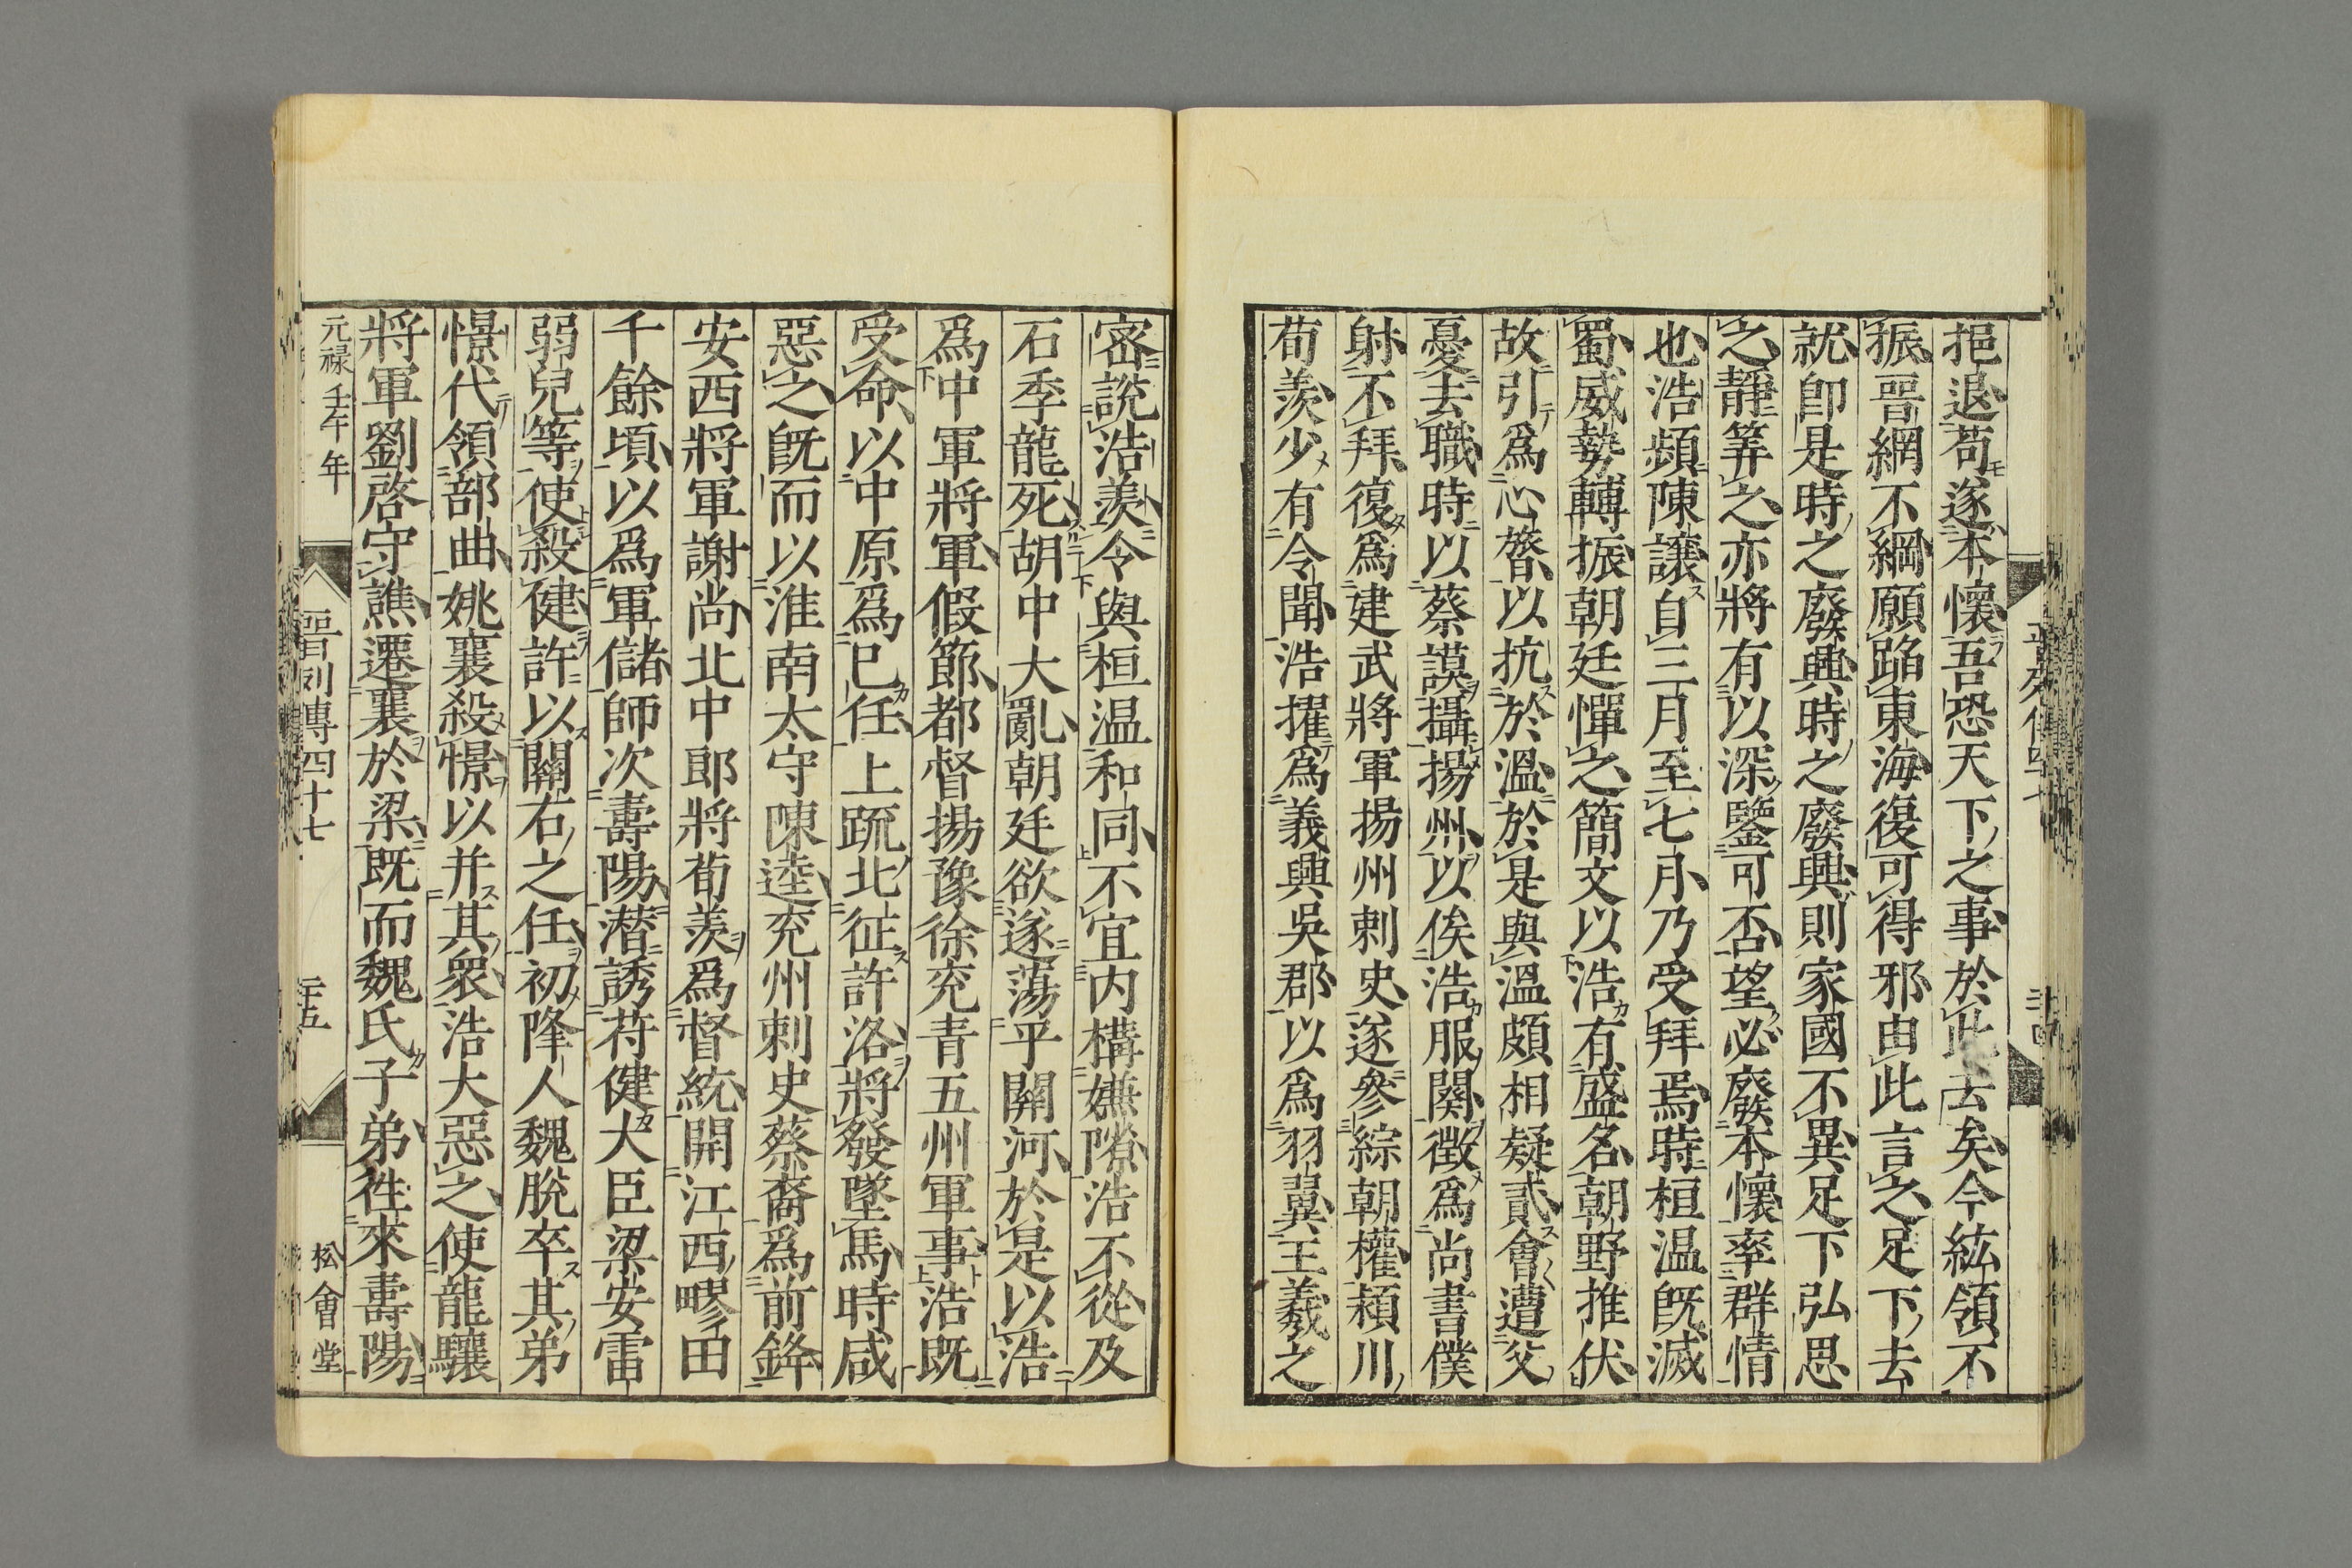 挹退苟遂本懷吾恐天下之事於此去矣今紘領不
振晉網不綱願蹈東海復可得邪由此言之足下去
就卽是時之廢興時之廢興則家國不異足下弘思
之靜筭之亦將有以深鑒可否望必廢本懷率群情
也浩頻陳讓自三月至七月乃受拜焉時桓温旣滅
蜀威勢轉振朝廷憚之簡文以浩有盛名朝野推伏
故引爲心膂以抗於溫於是與溫頗相疑貳會遭父
憂去職時以蔡謨攝揚州以俟浩服闋徵爲尚書僕
射不拜復爲建武將軍揚州刺史遂參綜朝權潁川
荀羨少有令聞浩擢爲義興吳郡以爲羽翼王羲之
密說浩羨令與桓温和同不宜内構嫌隙浩不從及
石季龍死胡中大亂朝廷欲遂蕩平關河於是以浩
爲中軍將軍假節都督揚豫徐兗青五州軍事浩既
受命以中原爲已任上疏北征許洛將發墜馬時咸
惡之旣而以淮南太守陳逵兗州刺史蔡裔爲前鋒
安西將軍謝尚北中郎將荀羨爲督統開江西疁田
千餘頃以爲軍儲師次壽陽潛誘苻健大臣梁安雷
弱兒等使殺健許以關右之任初降人魏脫卒其弟
憬代領部曲姚襄殺憬以并其衆浩大惡之使龍驤
將軍劉啓守譙遷襄於梁既而魏氏子弟往來壽陽
元禄壬午年
晉列傳四十七
二十五
松會堂